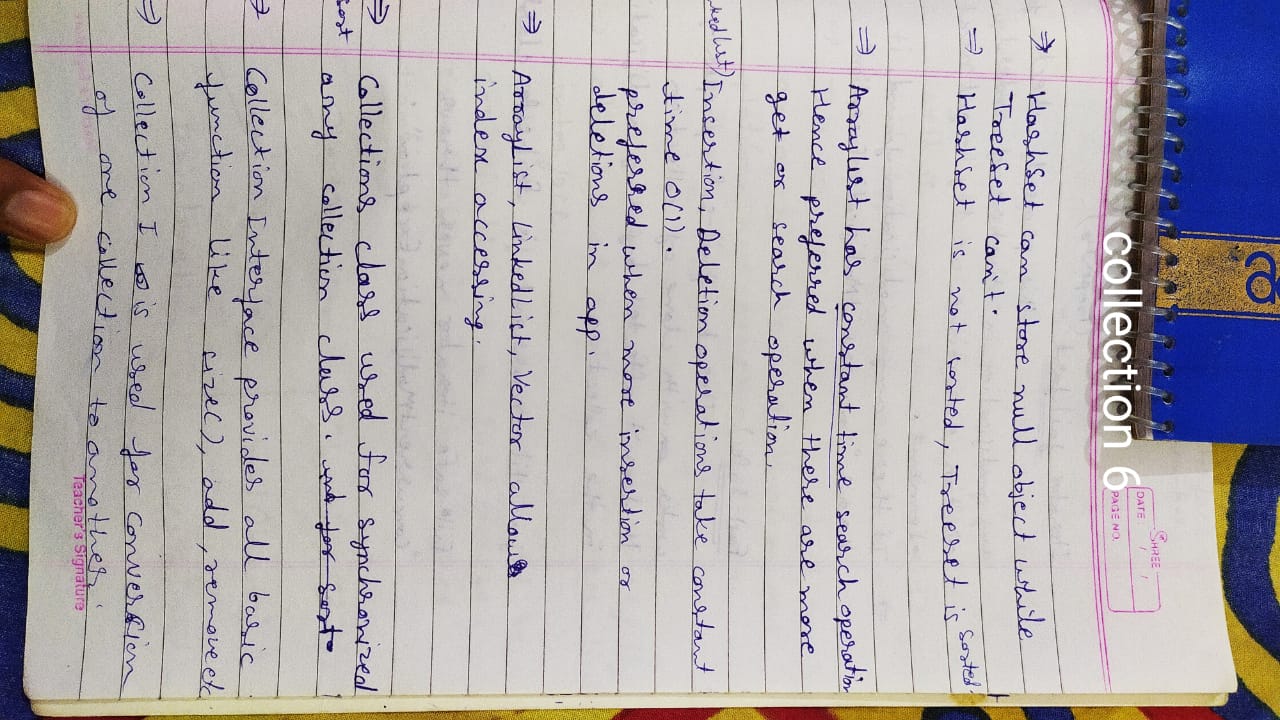 SHREE
DATE / /
PAGE NO.
collection 6
⇒ HashSet can store null object while
TreeSet can't.
⇒ HashSet is not sorted, Treeset is sorted.
⇒ ArrayList has constant time search operation
Hence preferred when there are more
get or search operation.
Insertion, Deletion operations take constant
time O(1).
preferred when more insertion or
deletions in app.
⇒ ArrayList, LinkedList, Vector allows
index accessing.
⇒ Collections class used for synchronized
sort any collection class. and for sort
⇒ Collection Interface provides all basic
function like size(), add, remove etc
⇒ Collection I is used for conversion
of one collection to another.
Teacher's Signature